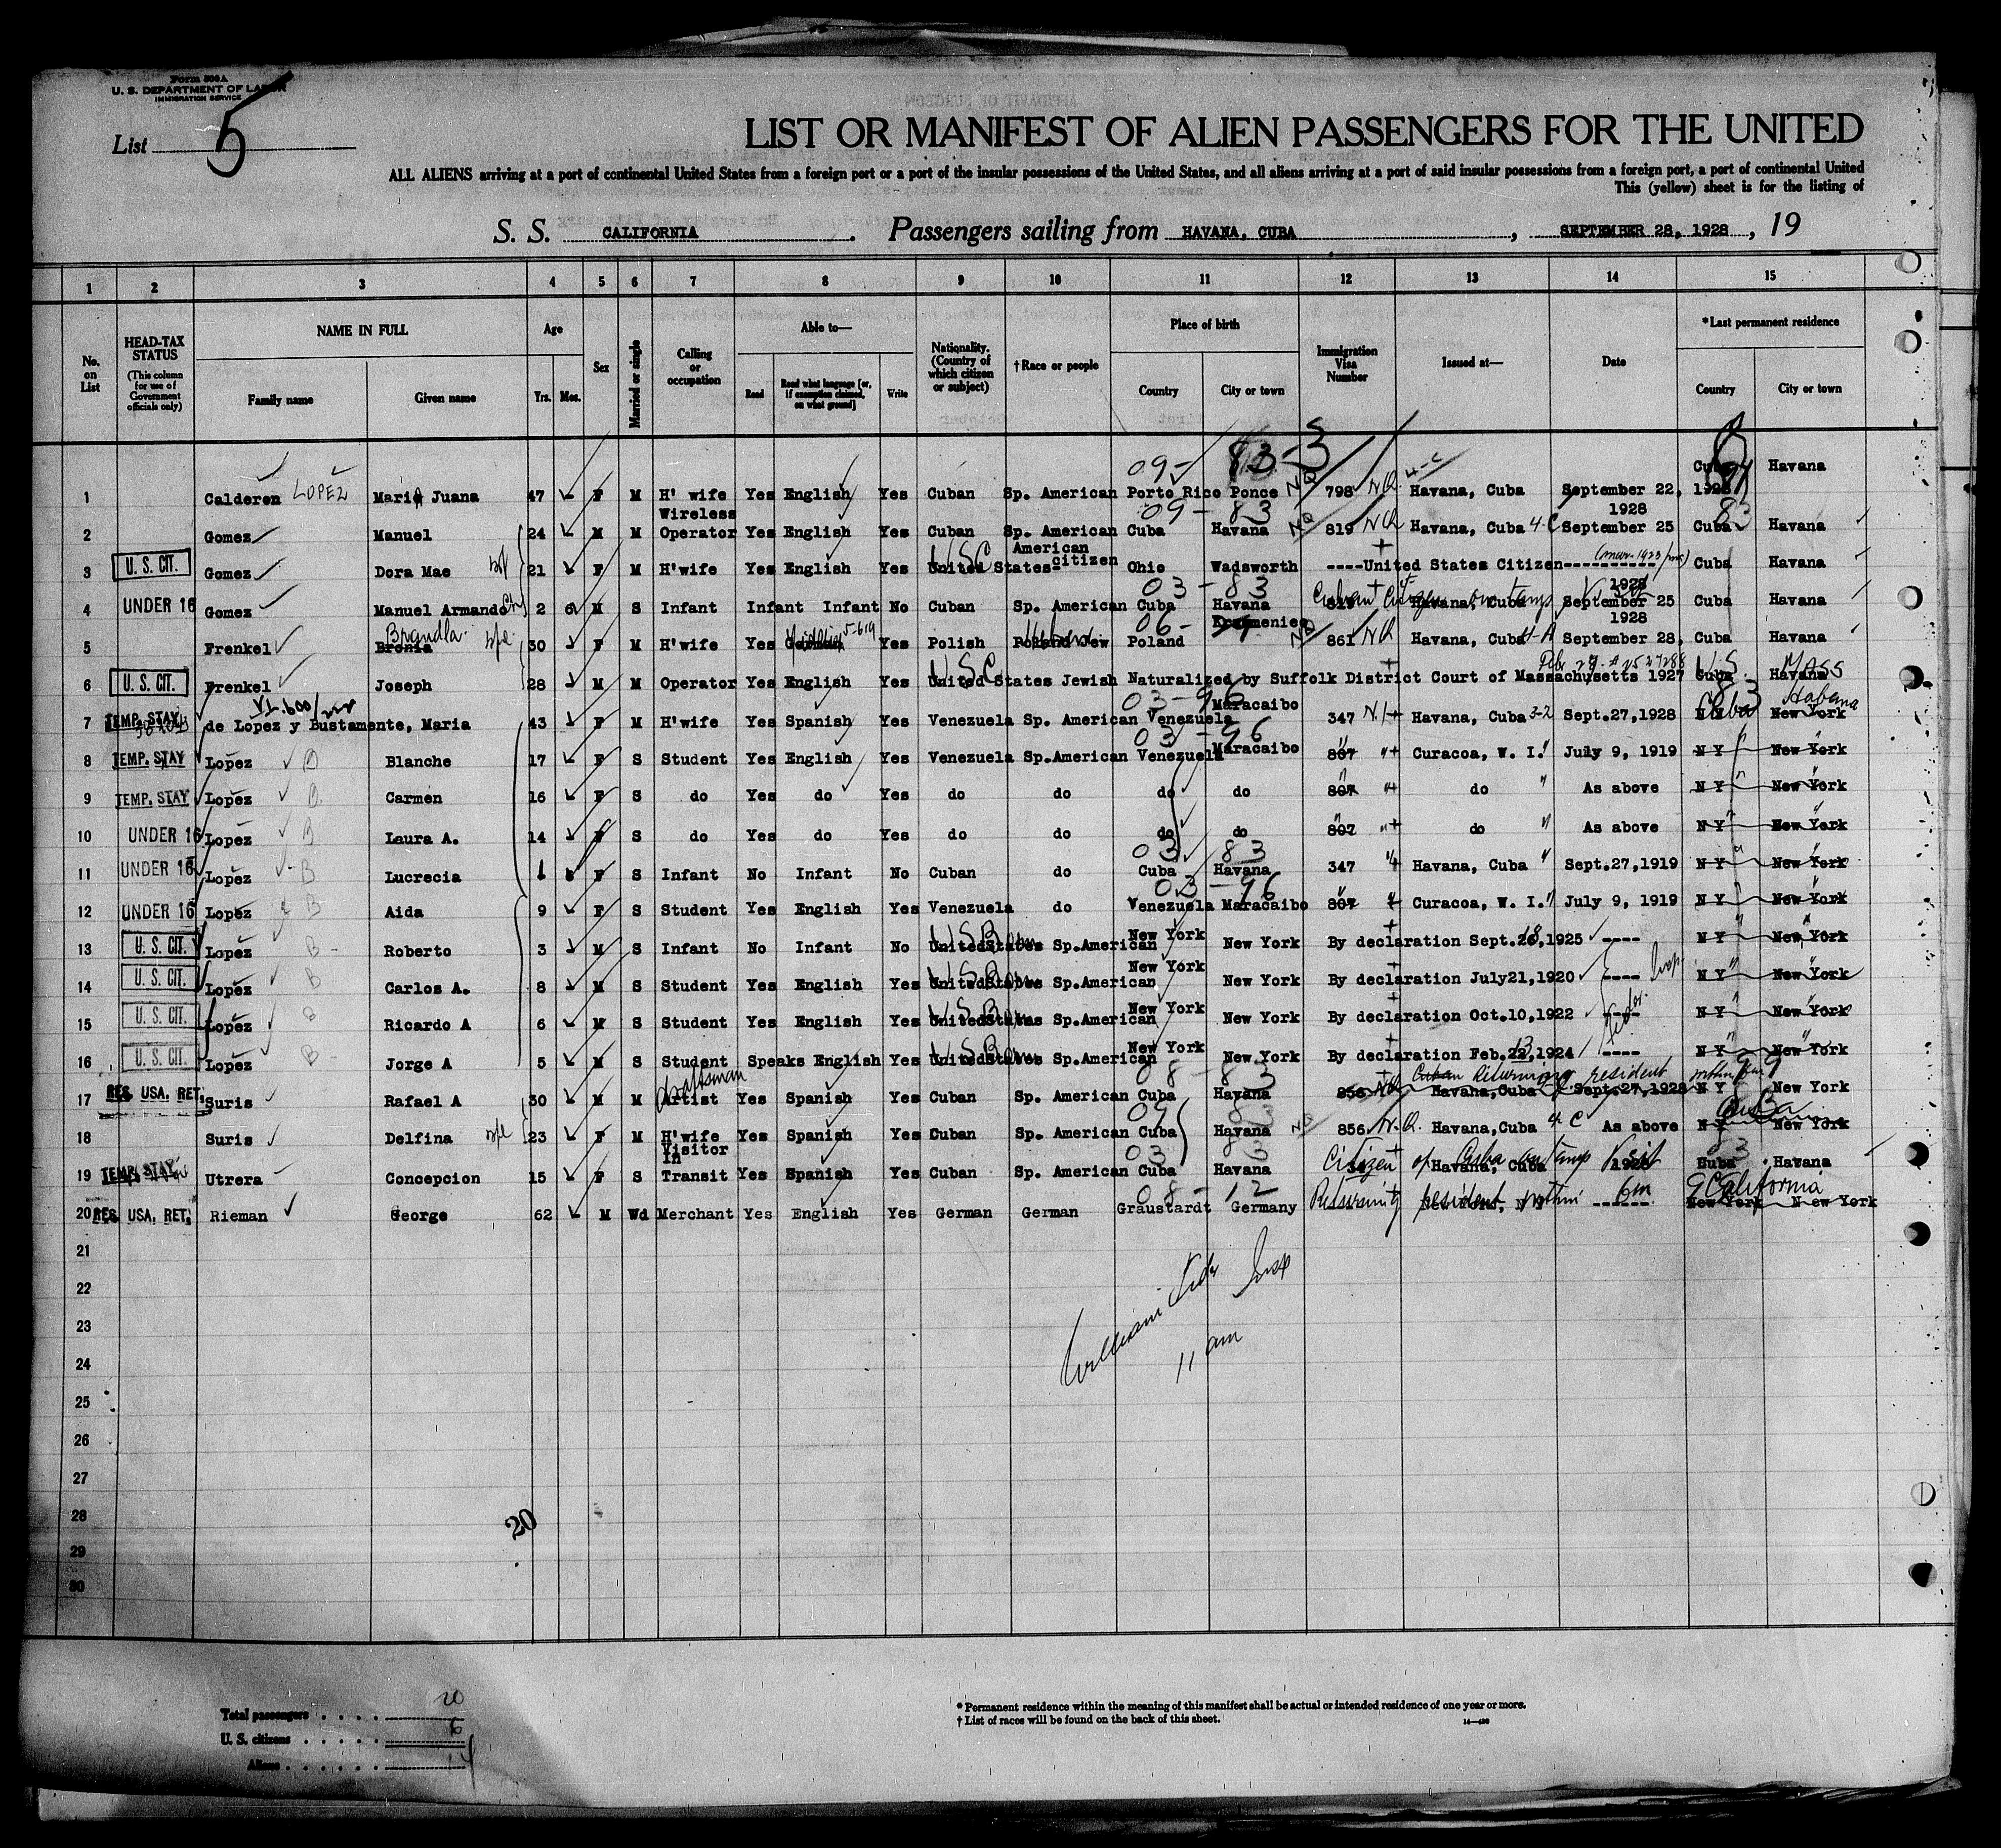 Form 500A
U. S. DEPARTMENT OF LABOR
IMMIGRATION SERVICE
List 5
LIST OR MANIFEST OF ALIEN PASSENGERS FOR THE UNITED
ALL ALIENS arriving at a port of continental United States from a foreign port or a port of the insular possessions of the United States, and all aliens arriving at a port of said insular possessions from a foreign port, a port of continental United
This (yellow) sheet is for the listing of
S. S. CALIFORNIA. Passengers sailing from HAVANA, CUBA, SEPTEMBER 28, 1928, 19
1 2 3 4 5 6 7 8 9 10 11 12 13 14 15
No. on List
HEAD-TAX STATUS (This column for use of Government officials only)
NAME IN FULL Family name Given name
Age Yrs. Mos.
Sex
Married or single
Calling or occupation
Able to— Read Read what language [or, if exemption claimed, on what ground] Write
Nationality. (Country of which citizen or subject)
† Race or people
Place of birth Country City or town
Immigration Visa Number
Issued at—
Date
*Last permanent residence Country City or town
09- 83-3
1 Calderon LOPEZ Maria Juana 47 F M H' wife Yes English Yes Cuban Sp. American Porto Rico Ponce 798 NQ Havana, Cuba September 22, 1928 Cuba Havana
09-83
2 Gomez Manuel 24 M M Wireless Operator Yes English Yes Cuban Sp. American Cuba Havana 819 NQ Havana, Cuba 4-C September 25 1928 Cuba Havana
3 U. S. CIT. Gomez Dora Mae wf 21 F M H'wife Yes English Yes United States USC American citizen Ohio Wadsworth ----United States Citizen---------- Cuba Havana
03-83
4 UNDER 16 Gomez Manuel Armando 2 6 M S Infant Infant Infant No Cuban Sp. American Cuba Havana Havana, Cuba September 25 1928 Cuba Havana
5 Frenkel Bronia Brandla wfe 30 F M H'wife Yes 5-619 Yes Polish Hebrew Poland Kremeniec 861 NQ Havana, Cuba 4-A September 28, 1928 Cuba Havana
6 U. S. CIT. Frenkel Joseph 28 M M Operator Yes English Yes United States USC Jewish Naturalized by Suffolk District Court of Massachusetts 1927 Cuba US Havana MASS
03-96
7 TEMP. STAY de Lopez y Bustamente, Maria 43 F M H'wife Yes Spanish Yes Venezuela Sp. American Venezuela Maracaibo 347 Havana, Cuba 3-2 Sept.27,1928 N Y Cuba New York Habana
03-96
8 TEMP. STAY Lopez B Blanche 17 F S Student Yes English Yes Venezuela Sp.American Venezuela Maracaibo 807 Curacoa, W. I. July 9, 1919 N Y New York
9 TEMP. STAY Lopez B Carmen 16 F S do Yes do Yes do do do do 807 do As above N Y New York
10 UNDER 16 Lopez B Laura A. 14 F S do Yes do Yes do do do do 807 do As above N Y New York
03 83
11 UNDER 16 Lopez B Lucrecia F S Infant No Infant No Cuban do Cuba Havana 347 Havana, Cuba Sept.27,1919 N Y New York
03-96
12 UNDER 16 Lopez B Aida 9 F S Student Yes English Yes Venezuela do Venezuela Maracaibo 807 Curacoa, W. I. July 9, 1919 N Y New York
13 U. S. CIT. Lopez B Roberto 3 M S Infant No Infant No UnitedStates USB Sp.American New York New York By declaration Sept. 18,1925 ---- N Y New York
14 U. S. CIT. Lopez B Carlos A. 8 M S Student Yes English Yes UnitedStates USB Sp.American New York New York By declaration July21,1920 ---- N Y New York
15 U. S. CIT. Lopez B Ricardo A 6 M S Student Yes English Yes UnitedStates USB Sp.American New York New York By declaration Oct.10,1922 ---- N Y New York
16 U. S. CIT. Lopez B Jorge A 5 M S Student Speaks English Yes UnitedStates USB Sp.American New York New York By declaration Feb. 13,1924 ---- N Y New York
08-83 Cuban Returning resident
17 RES. USA, RET. Suris Rafael A 30 M M Artist Draftsman Yes Spanish Yes Cuban Sp. American Cuba Havana 856 Havana,Cuba Sept.27,1928 N Y New York
09 83
18 Suris Delfina wfe 23 F M H'wife Yes Spanish Yes Cuban Sp. American Cuba Havana 856 N.Q. Havana,Cuba 4 C As above N Y Cuba New York
03 83 Citizen of Cuba on temp Visit
19 TEMP. STAY Utrera Concepcion 15 F S Visitor In Transit Yes Spanish Yes Cuban Sp. American Cuba Havana Havana, Cuba 1928 Cuba Havana
08-12 Returning resident within 6m California
20 RES. USA, RET. Rieman George 62 M Wd Merchant Yes English Yes German German Graustardt Germany New York, N Y ------ New York New York
21
22
23
24
25
26
27
28
29
30
11 am
20
Total passengers 20
U. S. citizens 6
Aliens 14
* Permanent residence within the meaning of this manifest shall be actual or intended residence of one year or more.
† List of races will be found on the back of this sheet.